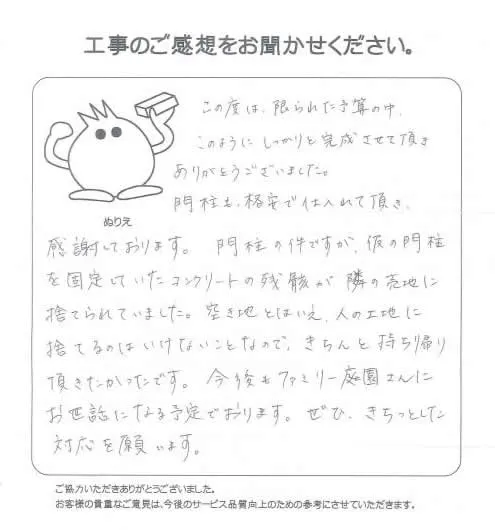 工事のご感想をお聞かせください。
この度は、限られた予算の中、
このように しっかりと完成させて頂き
ありがとうございました。
門柱も、格安で仕入れて頂き、
ぬりえ
感謝しております。 門柱の件ですが、仮の門柱
を固定していたコンクリートの残骸が 隣の売地に
捨てられていました。空き地とはいえ、人の土地に
捨てるのはいけないことなので、きちんと持ち帰り
頂きたかったです。 今後もファミリー庭園さんに
お世話になる予定でおります。 ぜひ、きちっとした
対応を願います。
ご協力いただきありがとうございました。
お客様の貴重なご意見は、今後のサービス品質向上のための参考にさせていただきます。